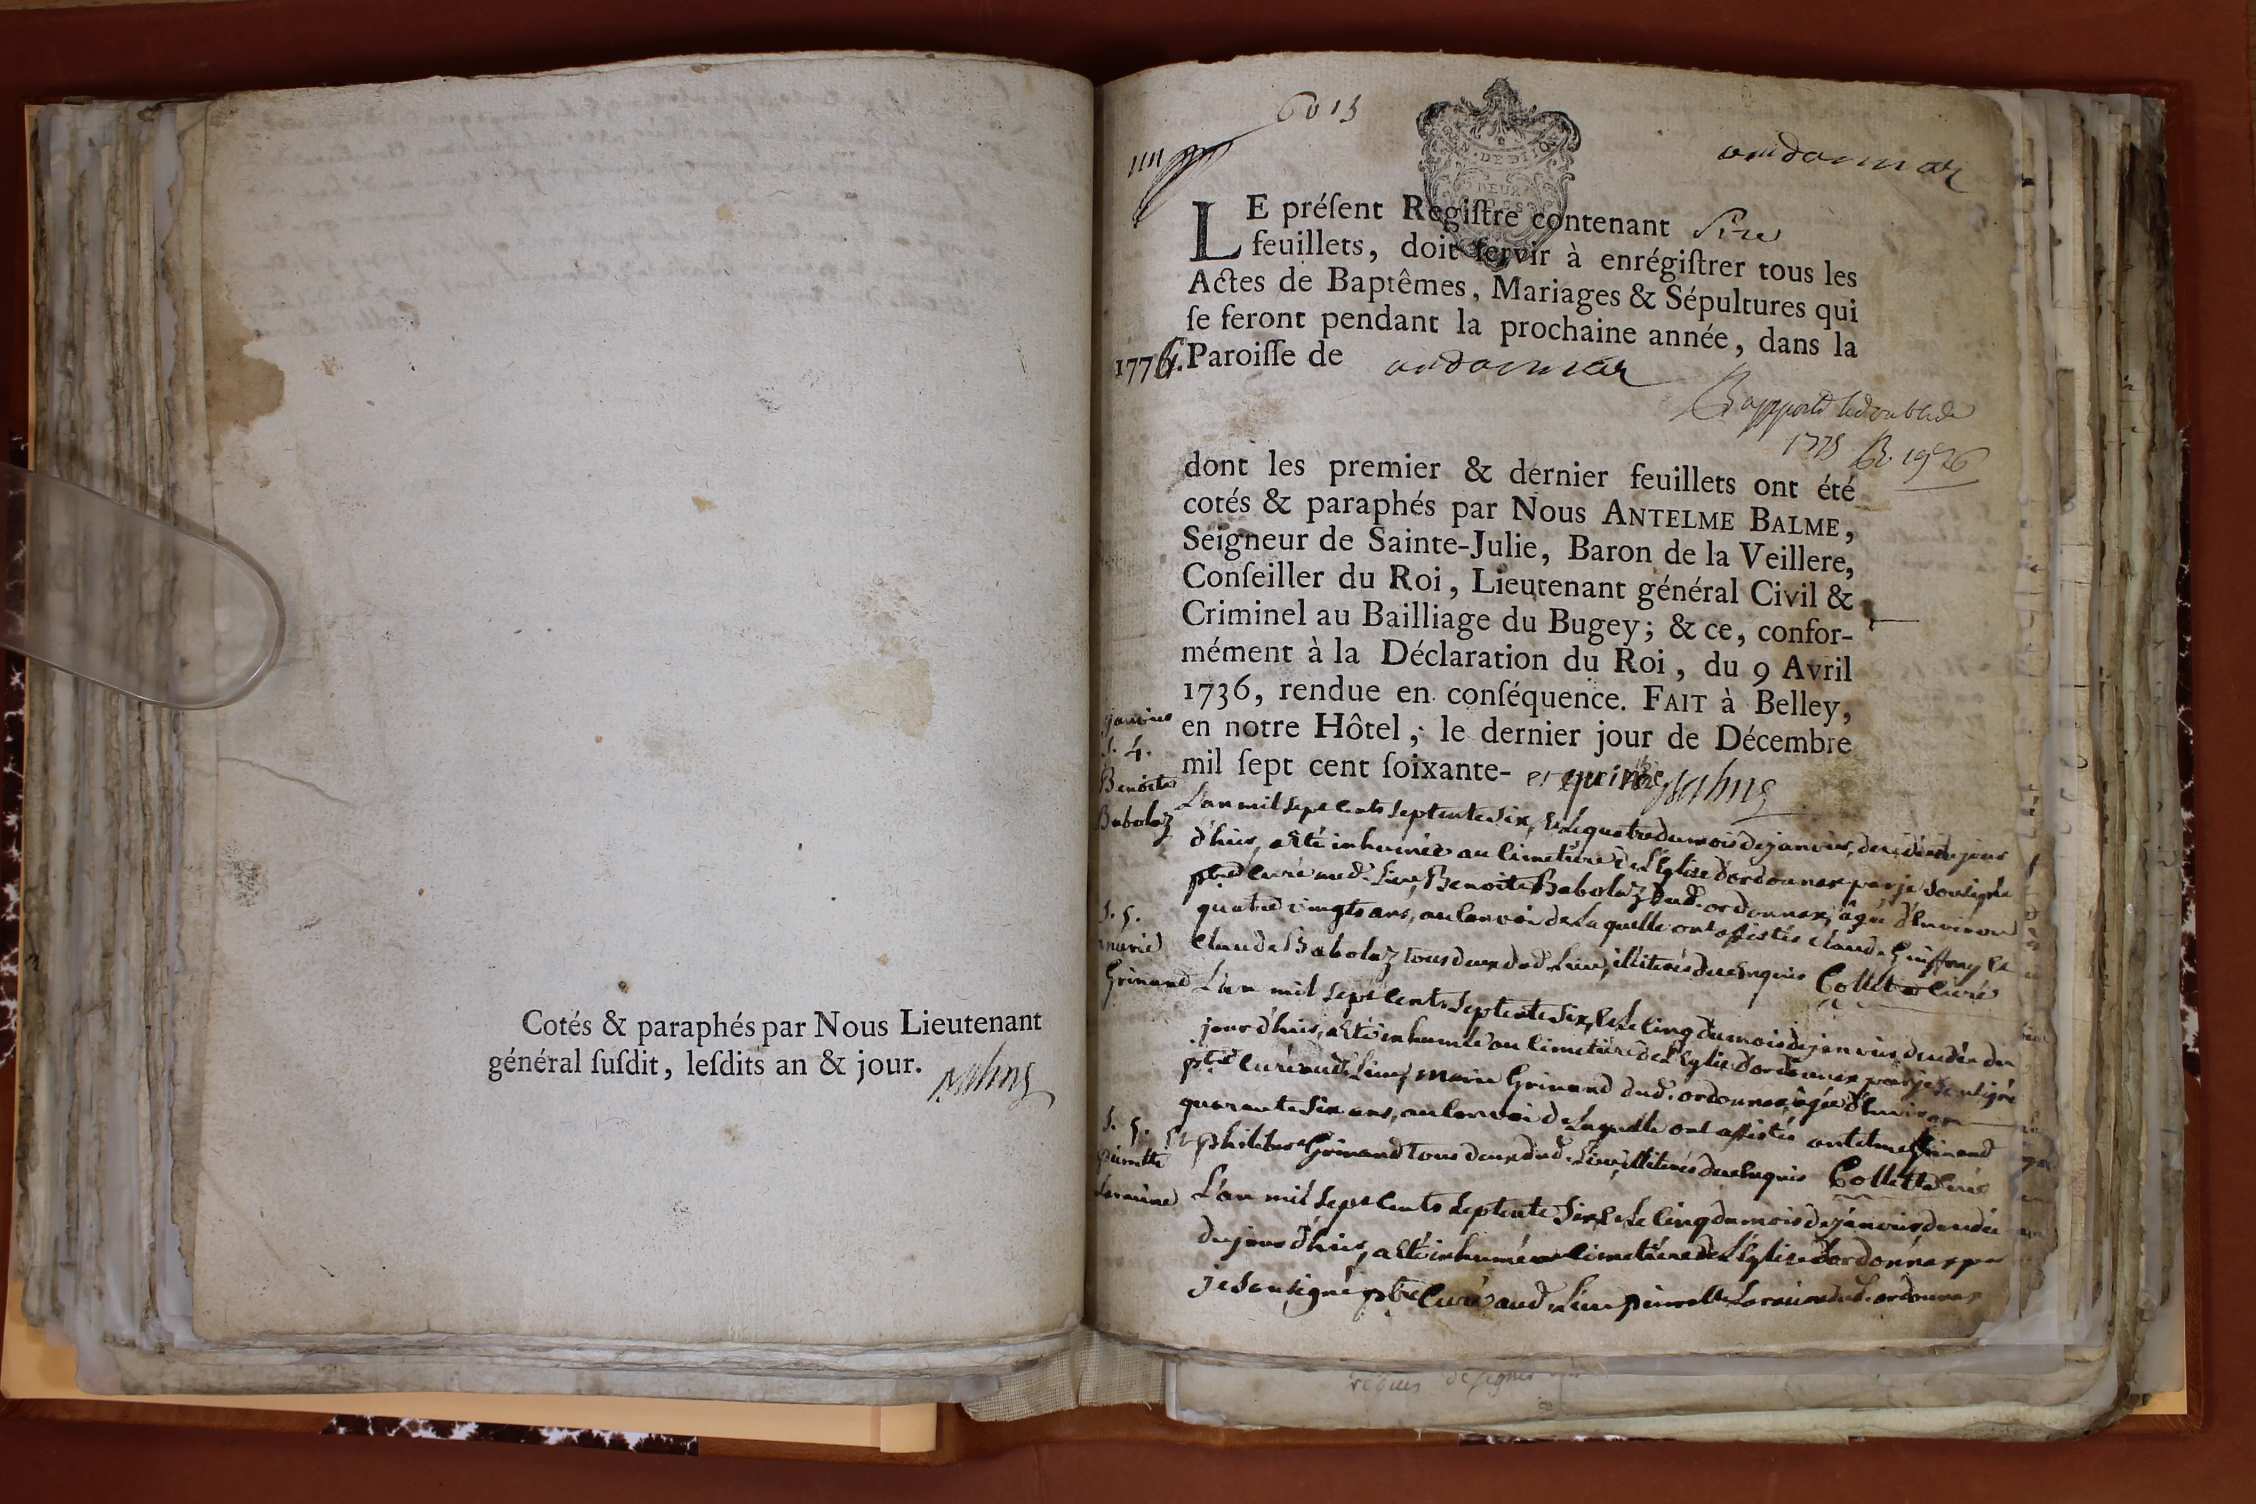 Cotés & paraphés par Nous Lieutenant
général ſuſdit, leſdits an & jour.
6013
ordonnax
LE préſent Regiſtre contenant Six
feuillets, doit ſervir à enrégiſtrer tous les
Actes de Baptêmes, Mariages & Sépultures qui
ſe feront pendant la prochaine année, dans la
1776. Paroiſſe de ordonnax
Rapporté le double de
1775
dont les premier & dernier feuillets ont été
cotés & paraphés par Nous ANTELME BALME,
Seigneur de Sainte-Julie, Baron de la Veillere,
Conſeiller du Roi, Lieutenant général Civil &
Criminel au Bailliage du Bugey; & ce, confor-
mément à la Déclaration du Roi, du 9 Avril
1736, rendue en conſéquence. FAIT à Belley,
en notre Hôtel, le dernier jour de Décembre
mil ſept cent ſoixante- et quinze
janvier
S. 4.
Benoite
Babolaz
L'an mil sept cents septente six, & le quatre du mois de janvier, decedée du jour
d'hier, a été inhumée au cimetière de l'Eglise d'ordonnax par je soussigné
ptre curé aud. lieu, Benoite Babolaz dud. ordonnax, âgée d'environ
quatre vingts ans, au convoi de laquelle ont assistés claude Guiffray et
claude Babolaz tous deux dud. lieu, illiterés de ce enquis Collet curé
S. 5.
marie
Grinand
L'an mil sept cents septente six, & le cinq du mois de janvier, decedée du
jour d'hier, a été inhumée au cimetière de l'Eglise d'ordonnax par je soussigné
ptre curé aud. lieu, marie Grinand dud. ordonnax, âgée d'environ
quarante six ans, au convoi de laquelle ont assistés antelme Grinand
et philibert Grinand tous deux dud. lieu, illiterés de ce enquis Collet curé
S. 5.
pierrette
L'an mil sept cents septente six, & le cinq du mois de janvier, decedée
du jour d'hier, a été inhumée au cimetière de l'Eglise d'ordonnax par
je soussigné ptre curé aud. lieu pierrette dud. ordonnax